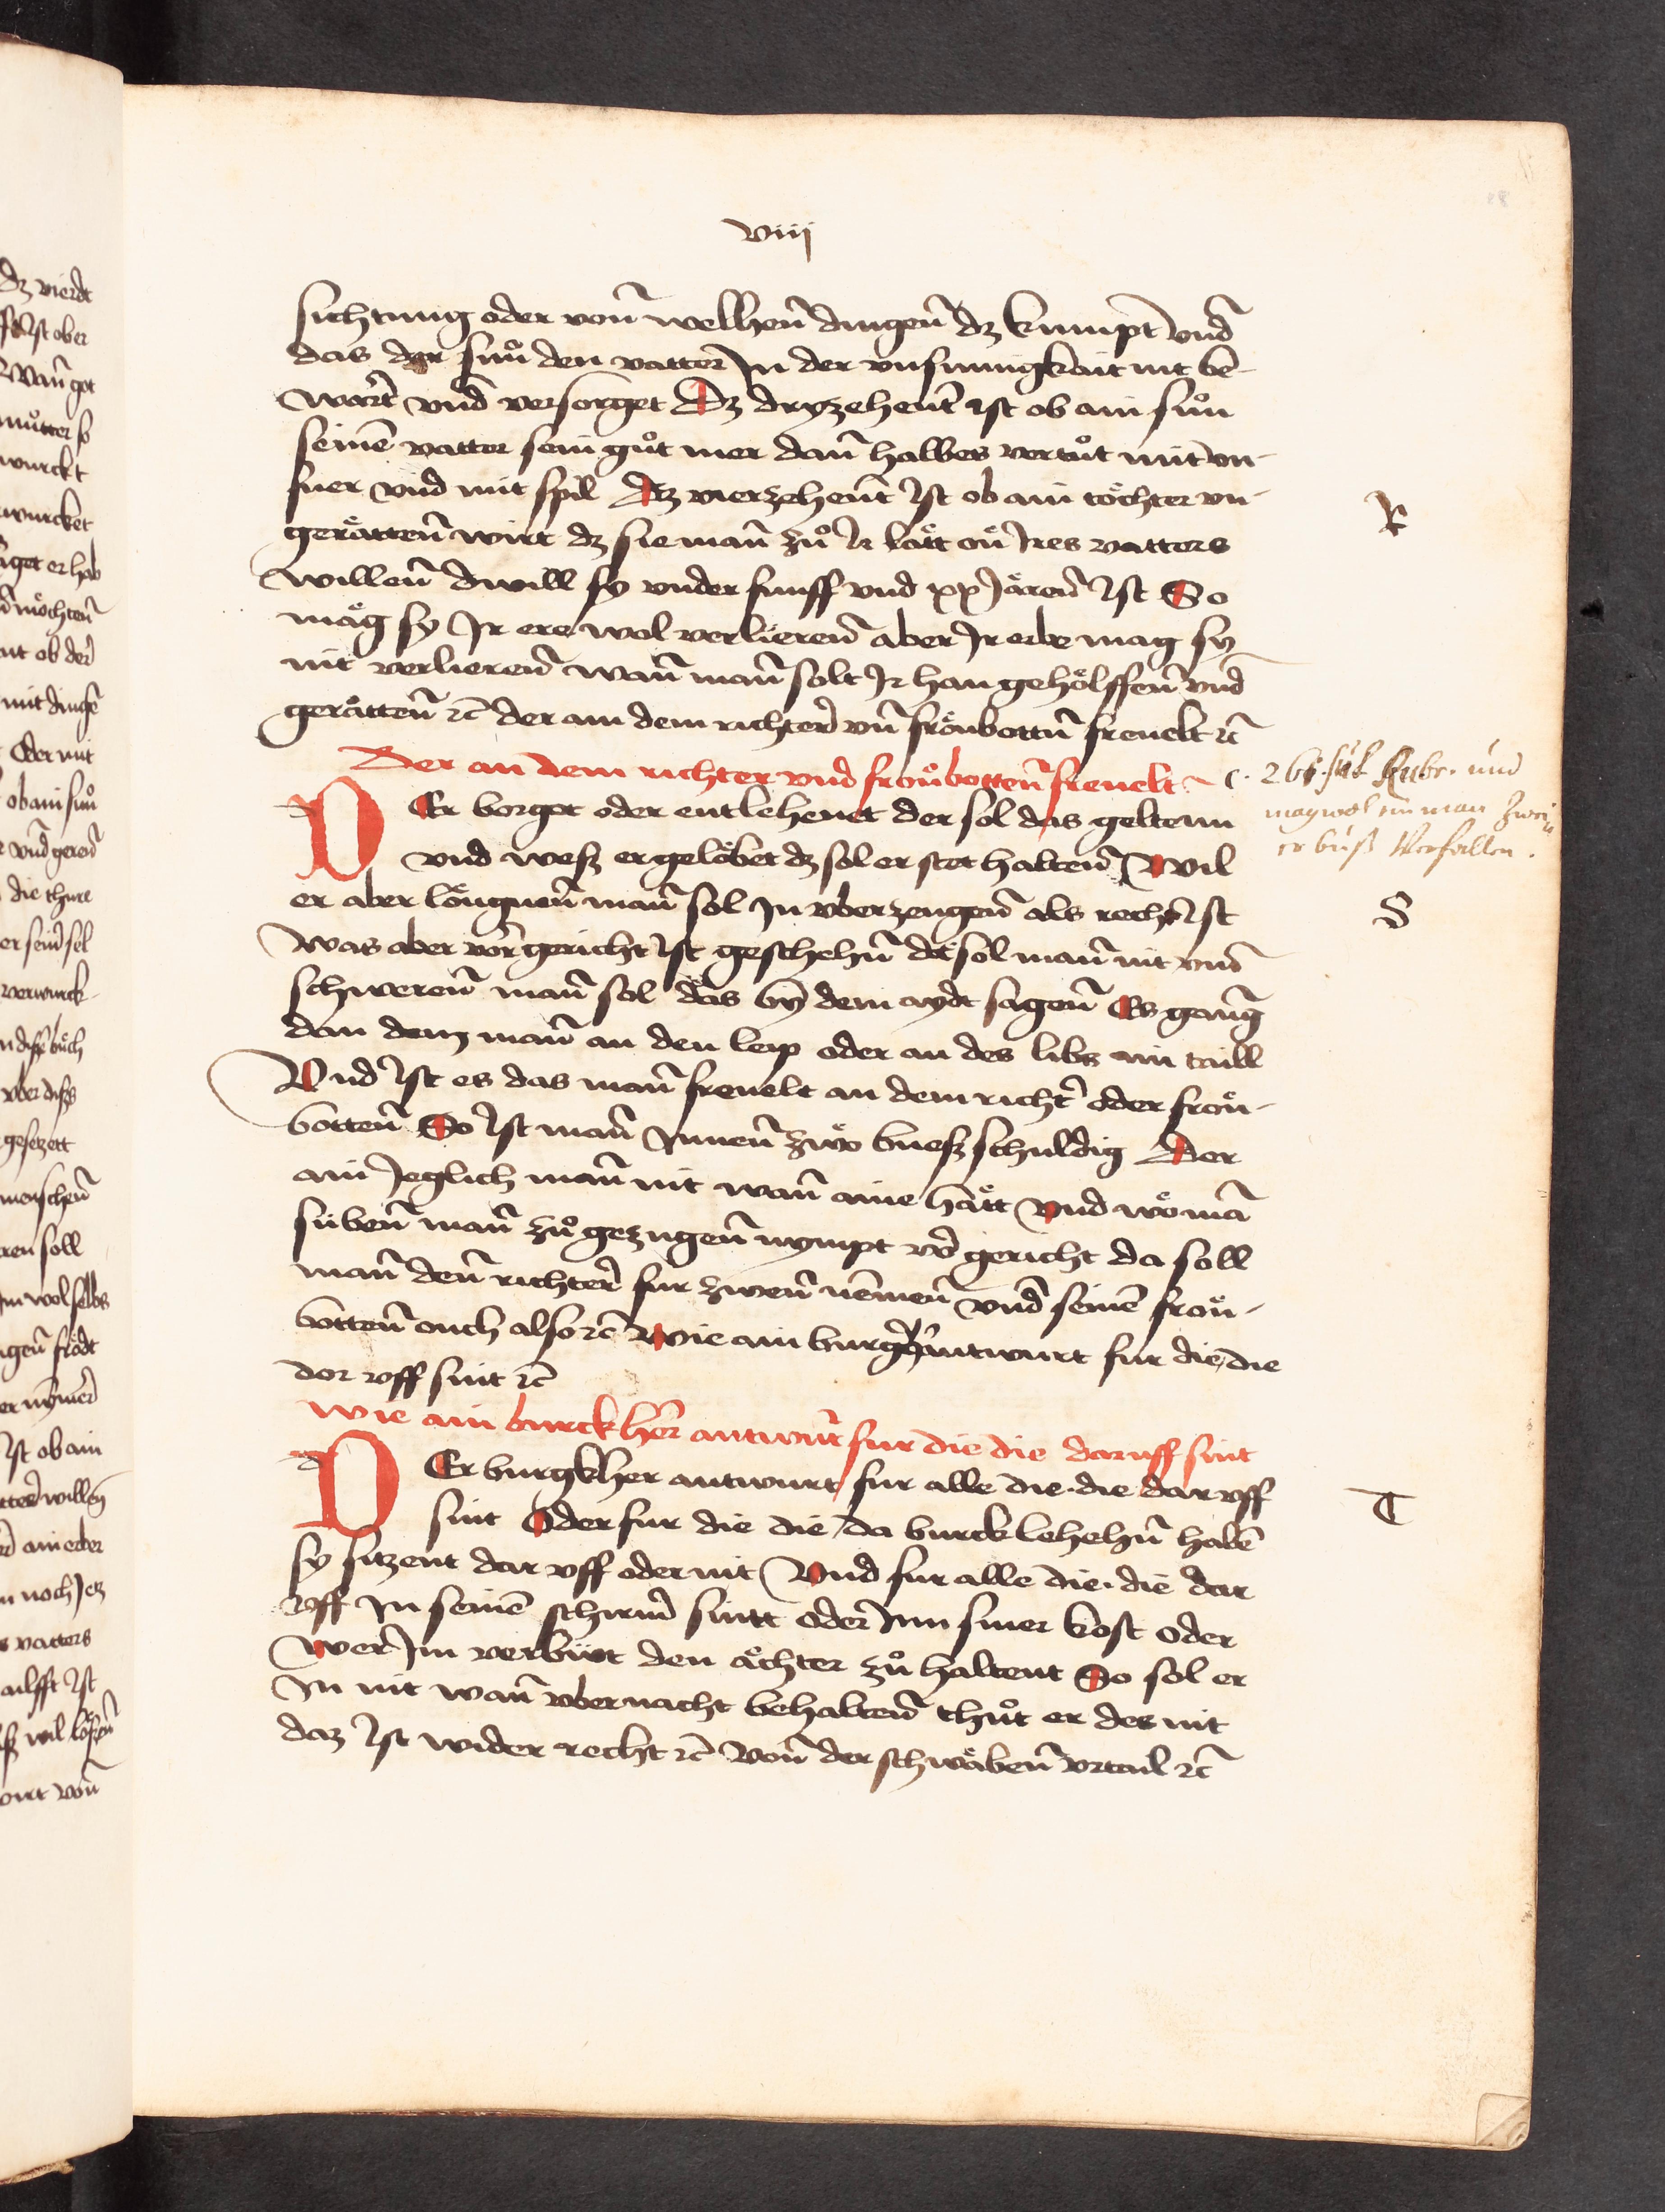 viij
sichtung oder von̄ welhen̄ dingen̄ dz kumpt vnd̄
das der sun̊ den vatter In der vnsinnigkait nit be-
wart vnd̄ versorget Dz dryzehent ist ob ain sun̊
seinē vatter sein gůt mer dan̄ halbes vertůt mit vn-
fuer vnd mit spil Dz vierzehent Ist ob ain töchter vn-
gerätten̄ wirt dz sie man̄ zů Ir latt on̄ Ires vatters
willen̄ dwill sy vnder funff vnd xx Jären̄ Ist So
mäg sy Ir ere wol verlieren̄ aber Ir erbe mag sy
nit verlieren̄ wan̄ man̄ solt Ir han gehölffen̄ vnd̄
gerätten̄ ꝛc̄ der an dem richter vn̄ frönbottn̄ freuelt ꝛc̄
Der an dem richter vnd fronbotten̄ freuelt
DEr borget oder entlehenet der sol das geltenn
vnd wesz er gelöbet dz sol er stet halten̄ Wil
er aber löugnen̄ man̄ sol In vberzeugen̄ als recht Ist
Was aber vor gericht Ist geschehn̄ do sol man̄ nit vmb
schweren̄ man̄ sol däs by dem aydt sagen̄ Es gang
dan dem man̄ an den leip oder an des libs ain taill
Vnd Ist es das man̄ freuelt an dem richt̄ oder fron-
botten̄ So Ist man̄ Innen̄ zwo buesz schuldig Der
ain Jeglich man̄ nit wan̄ aine hätt Vnd wö mā
süben̄ man̄ zů gezugen̄ nympt vor gericht da soll
man̄ den̄ richter fur zwen̄ nemen̄ vnd̄ seinē fron-
botten̄ ouch also ꝛc̄ Wie ain burgher antwurt fur die die
dor vff sint ꝛc̄
Wie ain burckher antwurt fur die die daruff sint
DEr burgkher antwurt fur alle die die dar vff
sint Oder fur die die da burcklehehn̄ habē
sy sitzent dar vff oder nit Vnd fur alle die die dar
vff In seinē schirm sintt oder Inn siner kost oder
wer Im verbüt den ächter zů haltent So sol er
In nit wan̄ vber nacht behalten̄ thůt er des nit
daz Ist wider recht ꝛc̄ Von̄ der schwäben̄ vrtail ꝛc̄
R
c. 266. sub Rubr. und
mag wol ein man zwei
er buß Verfallen.
S
T